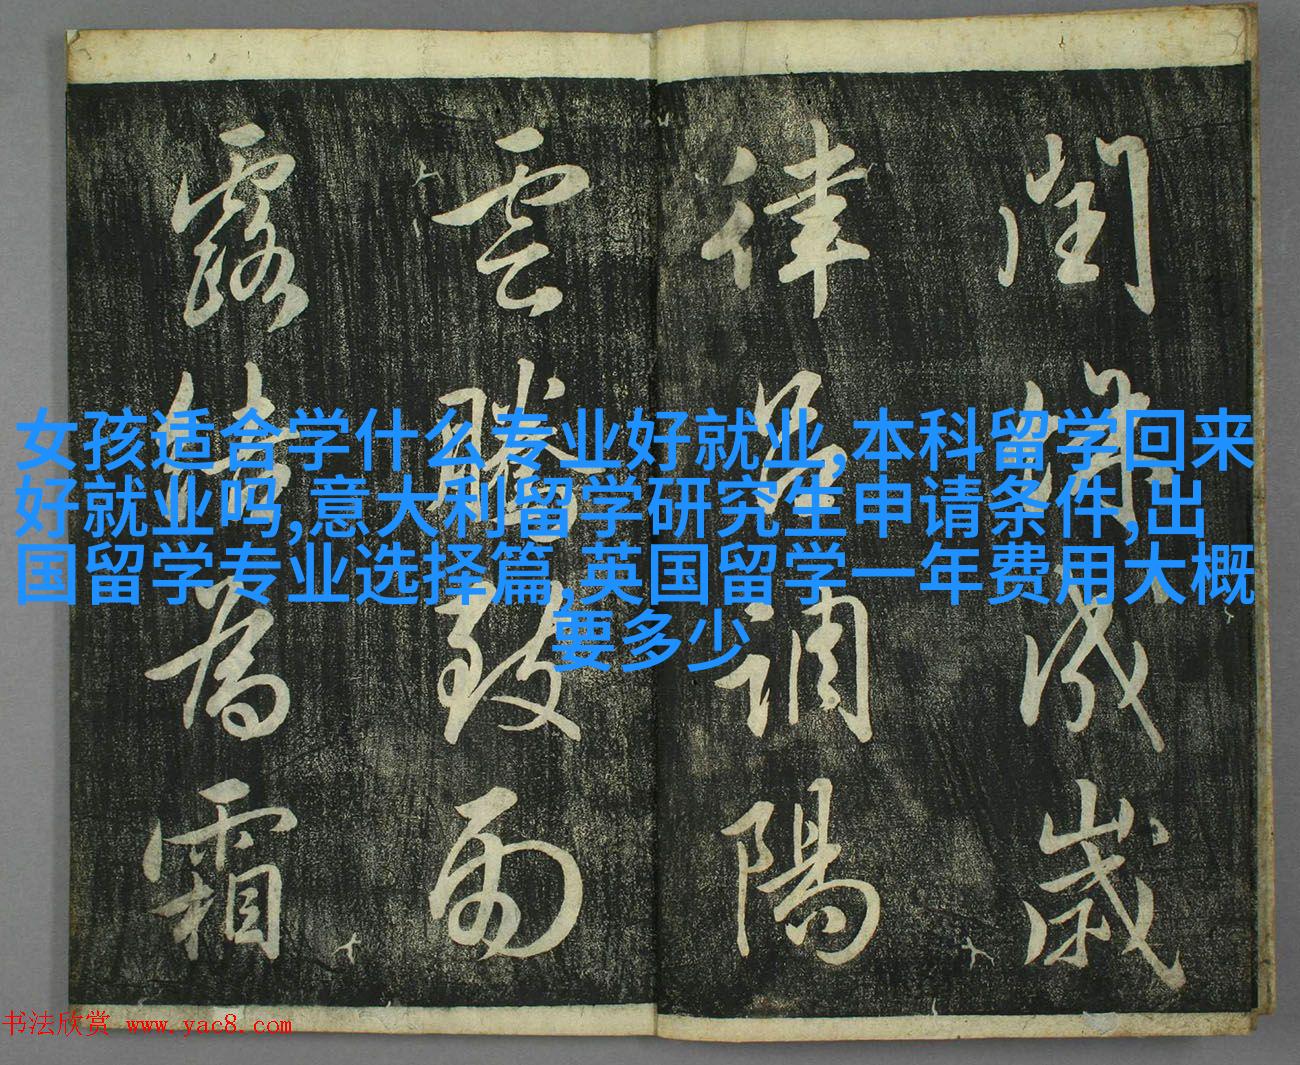 閏餘成歲
律呂調陽
雲騰致雨
露結為霜
女孩适合学什么专业好就业,本科留学回来
好就业吗,意大利留学研究生申请条件,出
国留学专业选择篇,英国留学一年费用大概
要多少
书法欣赏 www.yac8.com